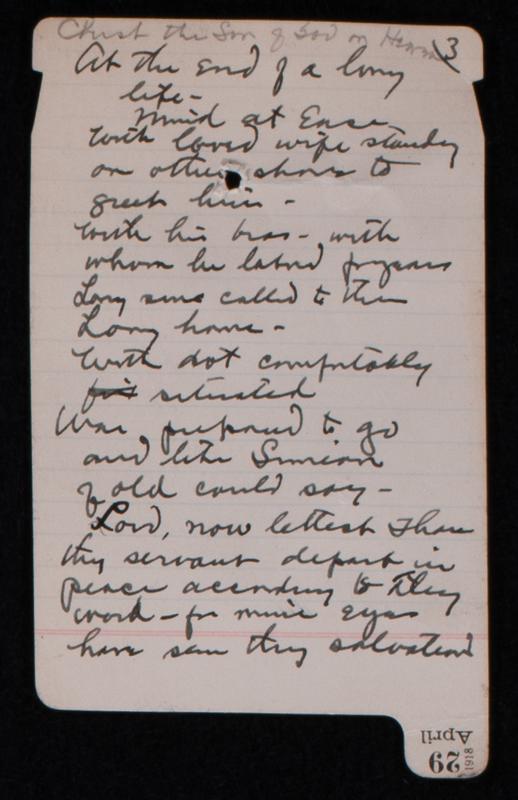 Christ the Son of God on
3
At the end of a long
life -
Mind at Ease
With loved wife standing
on other shore to
greet him -
With his bros - with
whom he labord for years
Long since called to their
Long home -
With dot comfortably
situated
Was prepared to go
and like Simeon
of old could say -
Lord, now lettest Thou
thy servant depart in
peace according to Thy
word - for mine eyes
have seen thy salvation
April 29
1918